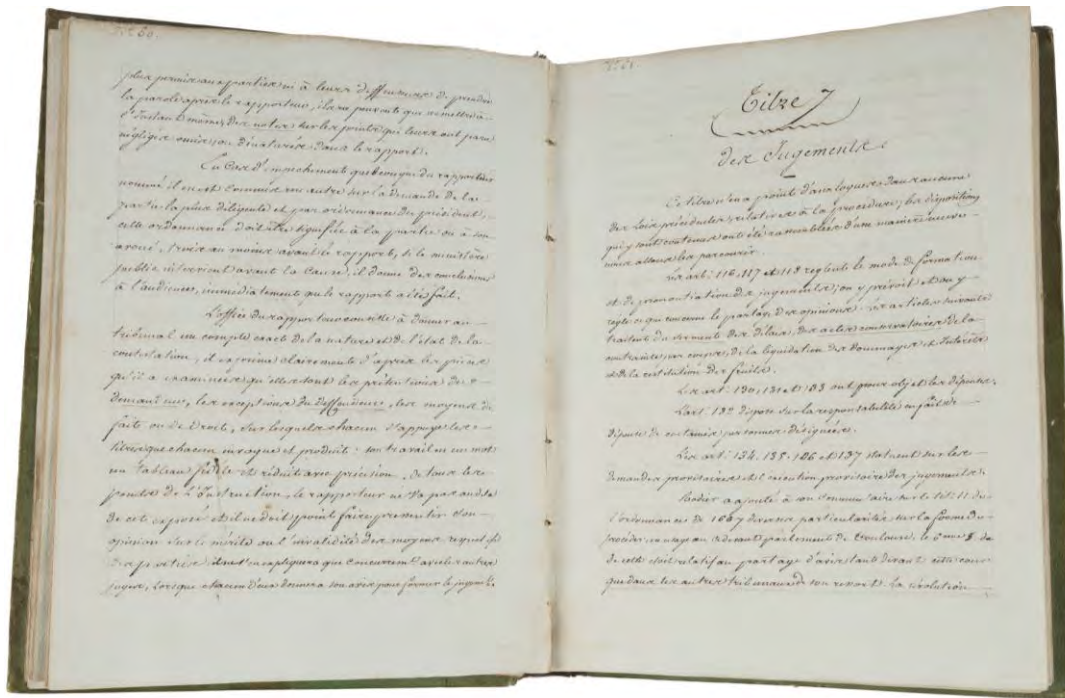 plus permis aux parties ni à leurs deffenseurs de prendre
la parole après le rapporteur, ils ne peuvent que remettre à
l'instant même, des notes sur les points qui leurs ont paru
négligés omis, ou dénaturés dans le rapport.
En Cas d'empêchement quelconque du rapporteur
nommé il en est commis un autre sur la demande de la
partie la plus diligente et par ordonnance du président,
cette ordonnance doit être signifiée à la partie ou à son
avoué, trois au moins avant le rapport, si le ministère
public intervient avant la Cause, il donne des conclusions
à l'audience, immédiatement que le rapport a été fait.
L'office du rapporteur consiste à donner au
tribunal un compte exact de la nature et de l'état de la
contestation, il exprime clairement d'après les pièces
qu'il a examinées qu'elles sont les prétentions des
demandeurs, les exceptions du deffendeur, les moyens de
fait ou de Droit, sur lesquels chacun s'appuye les
titres que chacun invoque et produit: son travail en un mot
un tableau fidèle et réduit avec précision, de tous les
points de L'Instruction, le rapporteur ne va pas au delà
de cet exposé et il ne doit point faire pressentir son
opinion sur le mérite ou l'invalidité des moyens
parties il ne s'en expliquera que concurremt avec les autres
juges, Lorsque chacun d'eux donnera son avis pour former le jugemt
Titre 7
des Jugements.
Ce titre n'en a point d'analogues dans aucune
des Lois précédentes relatives à la procédure; les dispositions
qui y sont contenues ont été rassemblées d'une manière
nous allons les parcourir.
Les art: 116, 117 et 118 règlent le mode de formation
et de prononciation des jugements; on y prévoit et on y
règle ce qui concerne le partage des opinions. Les articles suivants
traitent du serment des délais, des actes conservatoires de la
contrainte par corps, de la liquidation des dommages et Intérêts
et de la restitution des fruits.
Les art: 130, 131 et 133 ont pour objet les dépens;
L'art: 132 dispose sur la responsabilité en fait de
dépens de certaines personnes désignées.
Les art: 134. 135. 136 et 137 statuent sur les
demandes provisoires et l'exécution provisoire des jugements.
Rodier a ajouté à son Commentaire sur le tit: 11 de
l'ordonnance de 1667 diverses particularités sur la forme de
procéder en usage au cidevant parlement de Toulouse, le 6me § de
de cette est relatif au partage d'avis tant devant cette cour
que dans les autres tribunaux de son ressort. La révolution